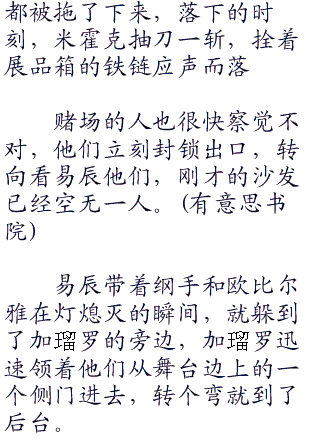 都被拖了下来，落下的时
刻，米霍克抽刀一斩，拴着
展品箱的铁链应声而落
赌场的人也很快察觉不
对，他们立刻封锁出口，转
向看易辰他们，刚才的沙发
已经空无一人。(有意思书
院)
易辰带着纲手和欧比尔
雅在灯熄灭的瞬间，就躲到
了加瑠罗的旁边，加瑠罗迅
速领着他们从舞台边上的一
个侧门进去，转个弯就到了
后台。